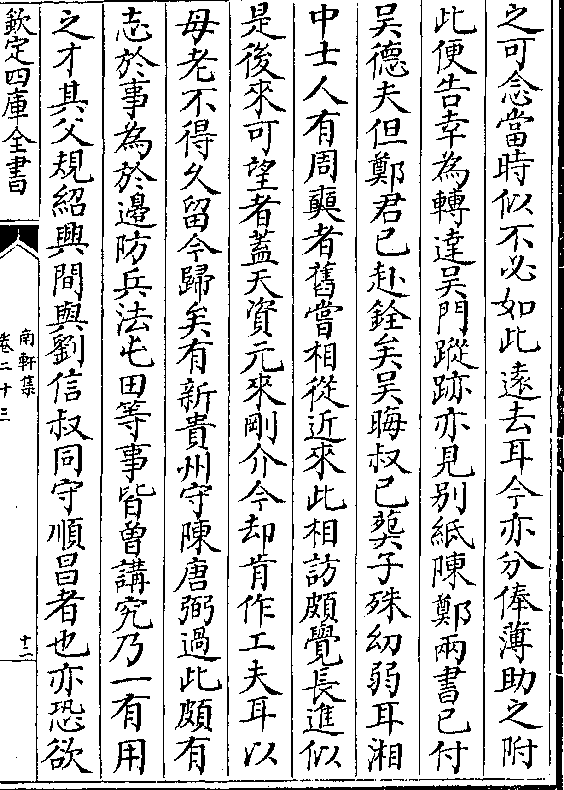 之可念當時似不必如此遠去耳今亦分俸薄助之附
此便告幸為轉達吴門蹤跡亦見别紙陳鄭兩書已付
吴德夫但鄭君已赴銓矣吴晦叔已𦵏子殊幼弱耳湘
中士人有周奭者舊嘗相從近來此相訪頗覺長進似
是後來可望者蓋天資元來剛介今却肯作工夫耳以
母老不得久留今歸矣有新貴州守陳唐弼過此頗有
志於事為於邊防兵法屯田等事皆曽講究乃一有用
之才其父規紹興間與劉信叔同守順昌者也亦恐欲
欽定四庫全書
南軒集
卷二十三
十二